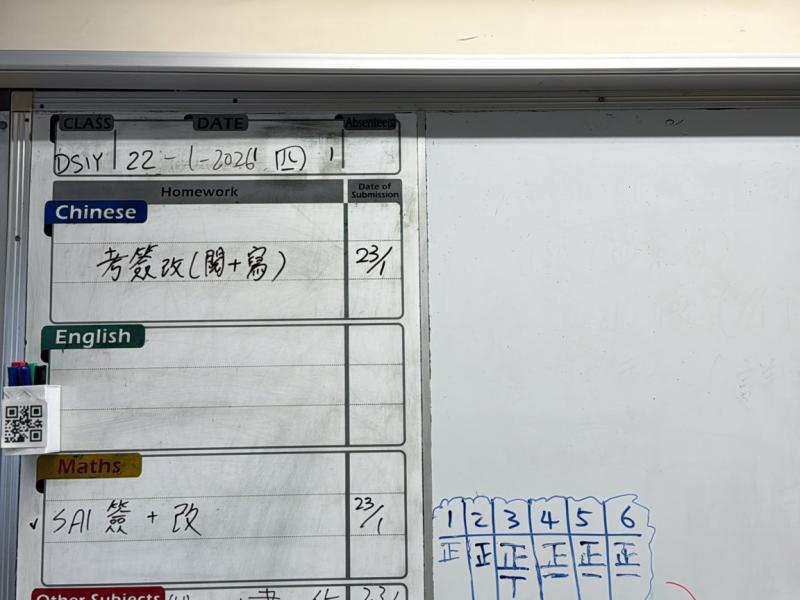 CLASS DATE Absentee(s)
22-1-2026 四
Homework Date of Submission
Chinese
考簽改(閱+寫) 23/1
English
Maths
✓ SA1 簽 + 改 23/1
Other Subjects 23/1
1 2 3 4 5 6
正 正 正 正 正 正